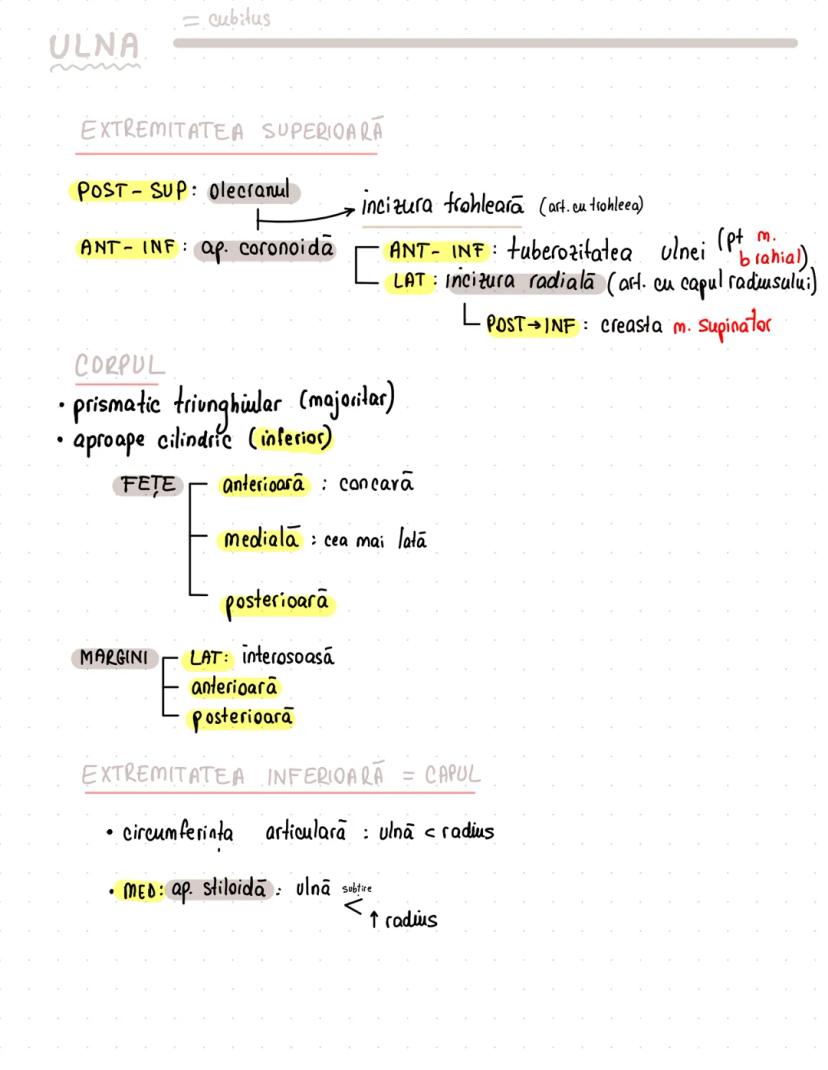 = cubitus
ULNA
EXTREMITATEA SUPERIOARĂ
POST - SUP: olecranul
incizura trohleară (art. cu trohleea)
ANT - INF: ap. coronoidă
ANT - INF: tuberozitatea ulnei (pt m. brahial)
LAT: incizura radială (art. cu capul radiusului)
POST → INF: creasta m. supinator
CORPUL
• prismatic triunghiular (majoritar)
• aproape cilindric (inferior)
FEȚE
anterioară : concavă
medială : cea mai lată
posterioară
MARGINI
LAT: interosoasă
anterioară
posterioară
EXTREMITATEA INFERIOARĂ = CAPUL
• circumferința articulară : ulnă < radius
• MED: ap. stiloidă : ulnă subtire
< ↑ radius